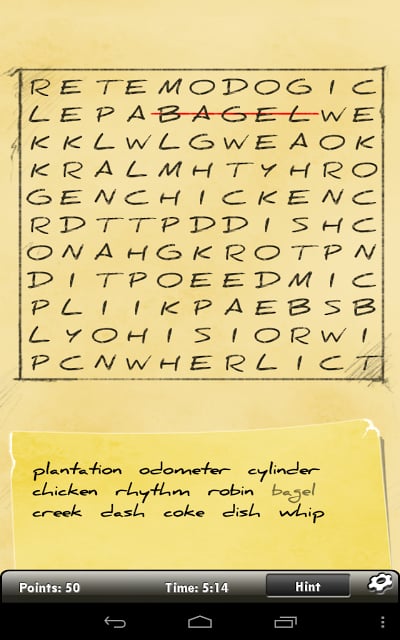 R E T E M O D O G I C
L E P A B A G E L W E
K K L W L G W E A O K
K R A L M H T Y H R O
G E N C H I C K E N C
R D T T P D D I S H C
O N A H G K R O T P N
D I T P O E E D M I C
P L I I K P A E B S B
L Y O H I S I O R W I
P C N W H E R L I C T
plantation odometer cylinder
chicken rhythm robin bagel
creek dash coke dish whip
Points: 50 Time: 5:14 Hint